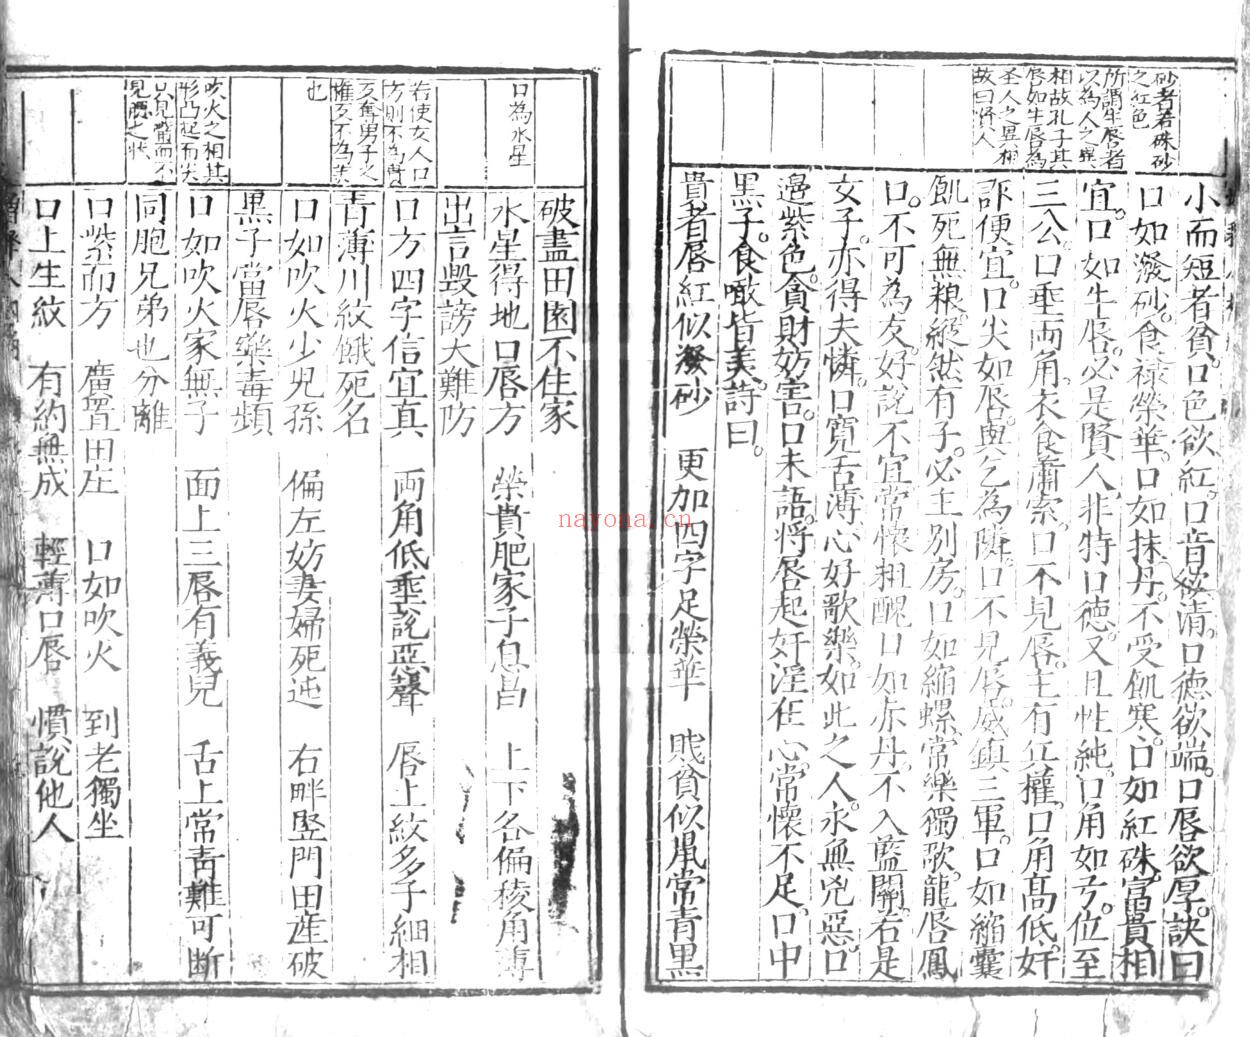 砂者若硃砂
之紅色
所謂牛唇者
以為人之異
相故孔子其
唇如牛唇為
聖人之異相
故曰賢人
小而短者貧口色欲紅口音欲清口德欲端口唇欲厚訣曰
口如潑砂食祿榮華口如抹丹不受飢寒口如紅硃富貴相
宜口如牛唇必是賢人非特口德又且性純口角如弓位至
三公口垂両角衣食蕭索口不見唇主有兵權口角高低奸
詐便宜口尖如唇與乞為隣口不見唇威鎮三軍口如縮囊
飢死無粮縱然有子必主別房口如縮螺常樂獨歌龍唇鳳
口不可為友好說不宜常懷粗醜口如赤丹不入藍關若是
女子亦得夫憐口寬舌薄心好歌樂如此之人永無兇惡口
邉紫色貪財妨害口未語將唇起奸淫在心常懷不足口中
黑子食噉皆美詩曰
貴者唇紅似潑砂　更加四字足榮華　賎貧似鼠常青黑
口為水星
若使女人口
方則不為貴
反奪男子之
權反不為美
也
吹火之相其
形凸起而尖
只見齒而不
見唇之狀
破盡田園不住家
水星得地口唇方　榮貴肥家子息昌　上下各偏稜角薄
出言毀謗大難防
口方四字信宜真　両角低垂說惡聲　唇上紋多子細相
青薄川紋餓死名
口如吹火少児孫　偏左妨妻婦死迍　右畔竪門田産破
黑子當唇樂毒頻
口如吹火家無子　面上三唇有義兒　舌上常青難可断
同胞兄弟也分離
口紫而方　廣置田庄　口如吹火　到老獨坐
口上生紋　有約無成　輕薄口唇　慣說他人
nayona.cn